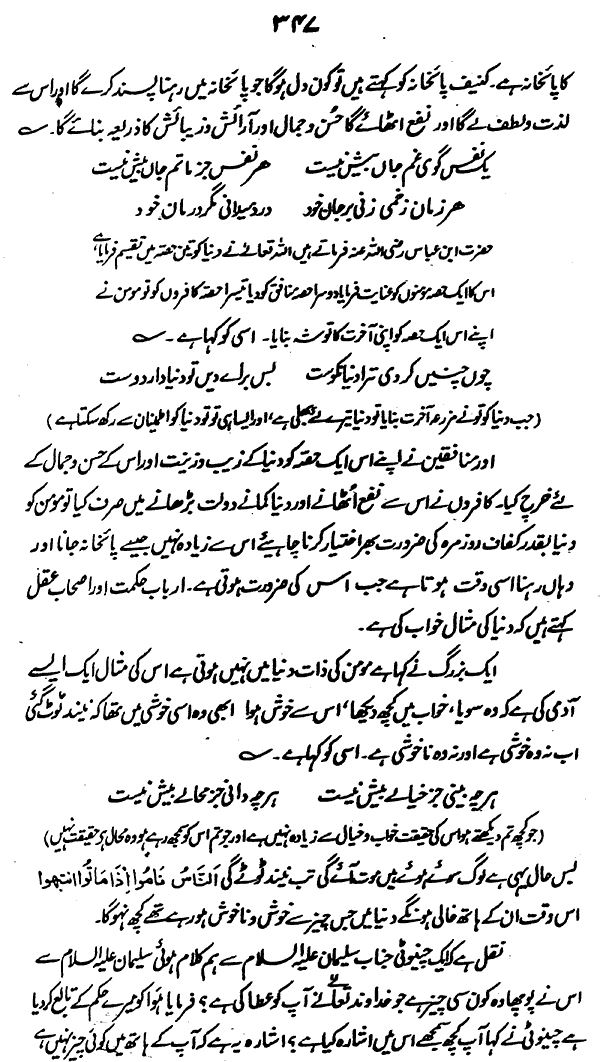 ۳۴۷
کا پائخانہ ہے۔ کنیف پائخانہ کو کہتے ہیں تو کون دل ہوگا جو پائخانہ میں رہنا پسند کرے گا اور اس سے
لذت و لطف لے گا اور نفع اٹھائے گا حُسن و جمال اور آرائش و زیبائش کا ذریعہ بنائے گا۔ ؎
یک نفس گوی غم جاں بیش نیست ہر نفس جز ماتم جاں بیش نیست
ہر زماں زخمی زنی بر جان خود درد میدانی مگر درمان خود
حضرت ابن عباس رضی اللہ عنہ فرماتے ہیں اللہ تعالےٰ نے دنیا کو تین حصہ میں تقسیم فرمایا ہے
اس کا ایک حصہ مومنوں کو عنایت فرمایا دوسرا حصہ منافق کو دیا تیسرا حصہ کافروں کو تو مومن نے
اپنے اس ایک حصہ کو اپنی آخرت کا توشہ بنایا۔ اسی کو کہا ہے۔ ؎
چوں چنیں کردی ترا دنیا نکوست بس برائے دیں تو دنیا دار دوست
(جب دنیا کو تو نے مزرعہ آخرت بنایا تو دنیا تیرے لئے بھلی ہے، اور ایسا ہی تو تو دنیا کو اطمینان سے رکھ سکتا ہے)
اور منافقین نے اپنے اس ایک حصہ کو دنیا کے زیب و زینت اور اس کے حسن و جمال کے
لئے خرچ کیا۔ کافروں نے اس سے نفع اُٹھانے اور دنیا کمانے دولت بڑھانے میں صرف کیا تو مومن کو
دنیا بقدر کفاف روزمرہ کی ضرورت بھر اختیار کرنا چاہیئے اس سے زیادہ نہیں جیسے پائخانہ جانا اور
وہاں رہنا اسی وقت ہوتا ہے جب اس کی ضرورت ہوتی ہے۔ ارباب حکمت اور اصحاب عقل
کہتے ہیں کہ دنیا کی مثال خواب کی ہے۔
ایک بزرگ نے کہا ہے مومن کی ذات دنیا میں نہیں ہوتی ہے اس کی مثال ایک ایسے
آدمی کی ہے کہ وہ سویا، خواب میں کچھ دیکھا، اس سے خوش ہوا ابھی وہ اسی خوشی میں تھا کہ نیند ٹوٹ گئی
اب نہ وہ خوشی ہے اور نہ وہ ناخوشی ہے۔ اسی کو کہا ہے۔ ؎
ہرچہ بینی جز خیالے بیش نیست ہرچہ دانی جز محالے بیش نیست
(جو کچھ تم دیکھتے ہو اس کی حقیقت خواب و خیال سے زیادہ نہیں ہے اور جو تم اس کو سمجھ رہے ہو وہ محال ہے حقیقت نہیں)
بس حال یہی ہے لوگ سوئے ہوئے ہیں موت آئے گی تب نیند ٹوٹے گی اَلنَّاسُ نَامُوا اِذَا مَاتُوا انتبهوا
اس وقت ان کے ہاتھ خالی ہونگے دنیا میں جس چیز سے خوش و ناخوش ہو رہے تھے کچھ نہ ہوگا۔
نقل ہے کہ ایک چینوٹی جناب سلیمان علیہ السلام سے ہم کلام ہوئی سلیمان علیہ السلام سے
اس نے پوچھا وہ کون سی چیز ہے جو خداوند تعالےٰ نے آپ کو عطا کی ہے؟ فرمایا ہوا کو میرے حکم کے تابع کر دیا
ہے چینوٹی نے کہا آپ کچھ سمجھے اس میں اشارہ کیا ہے؟ اشارہ یہ ہے کہ آپ کے ہاتھ میں کوئی چیز نہیں ہے